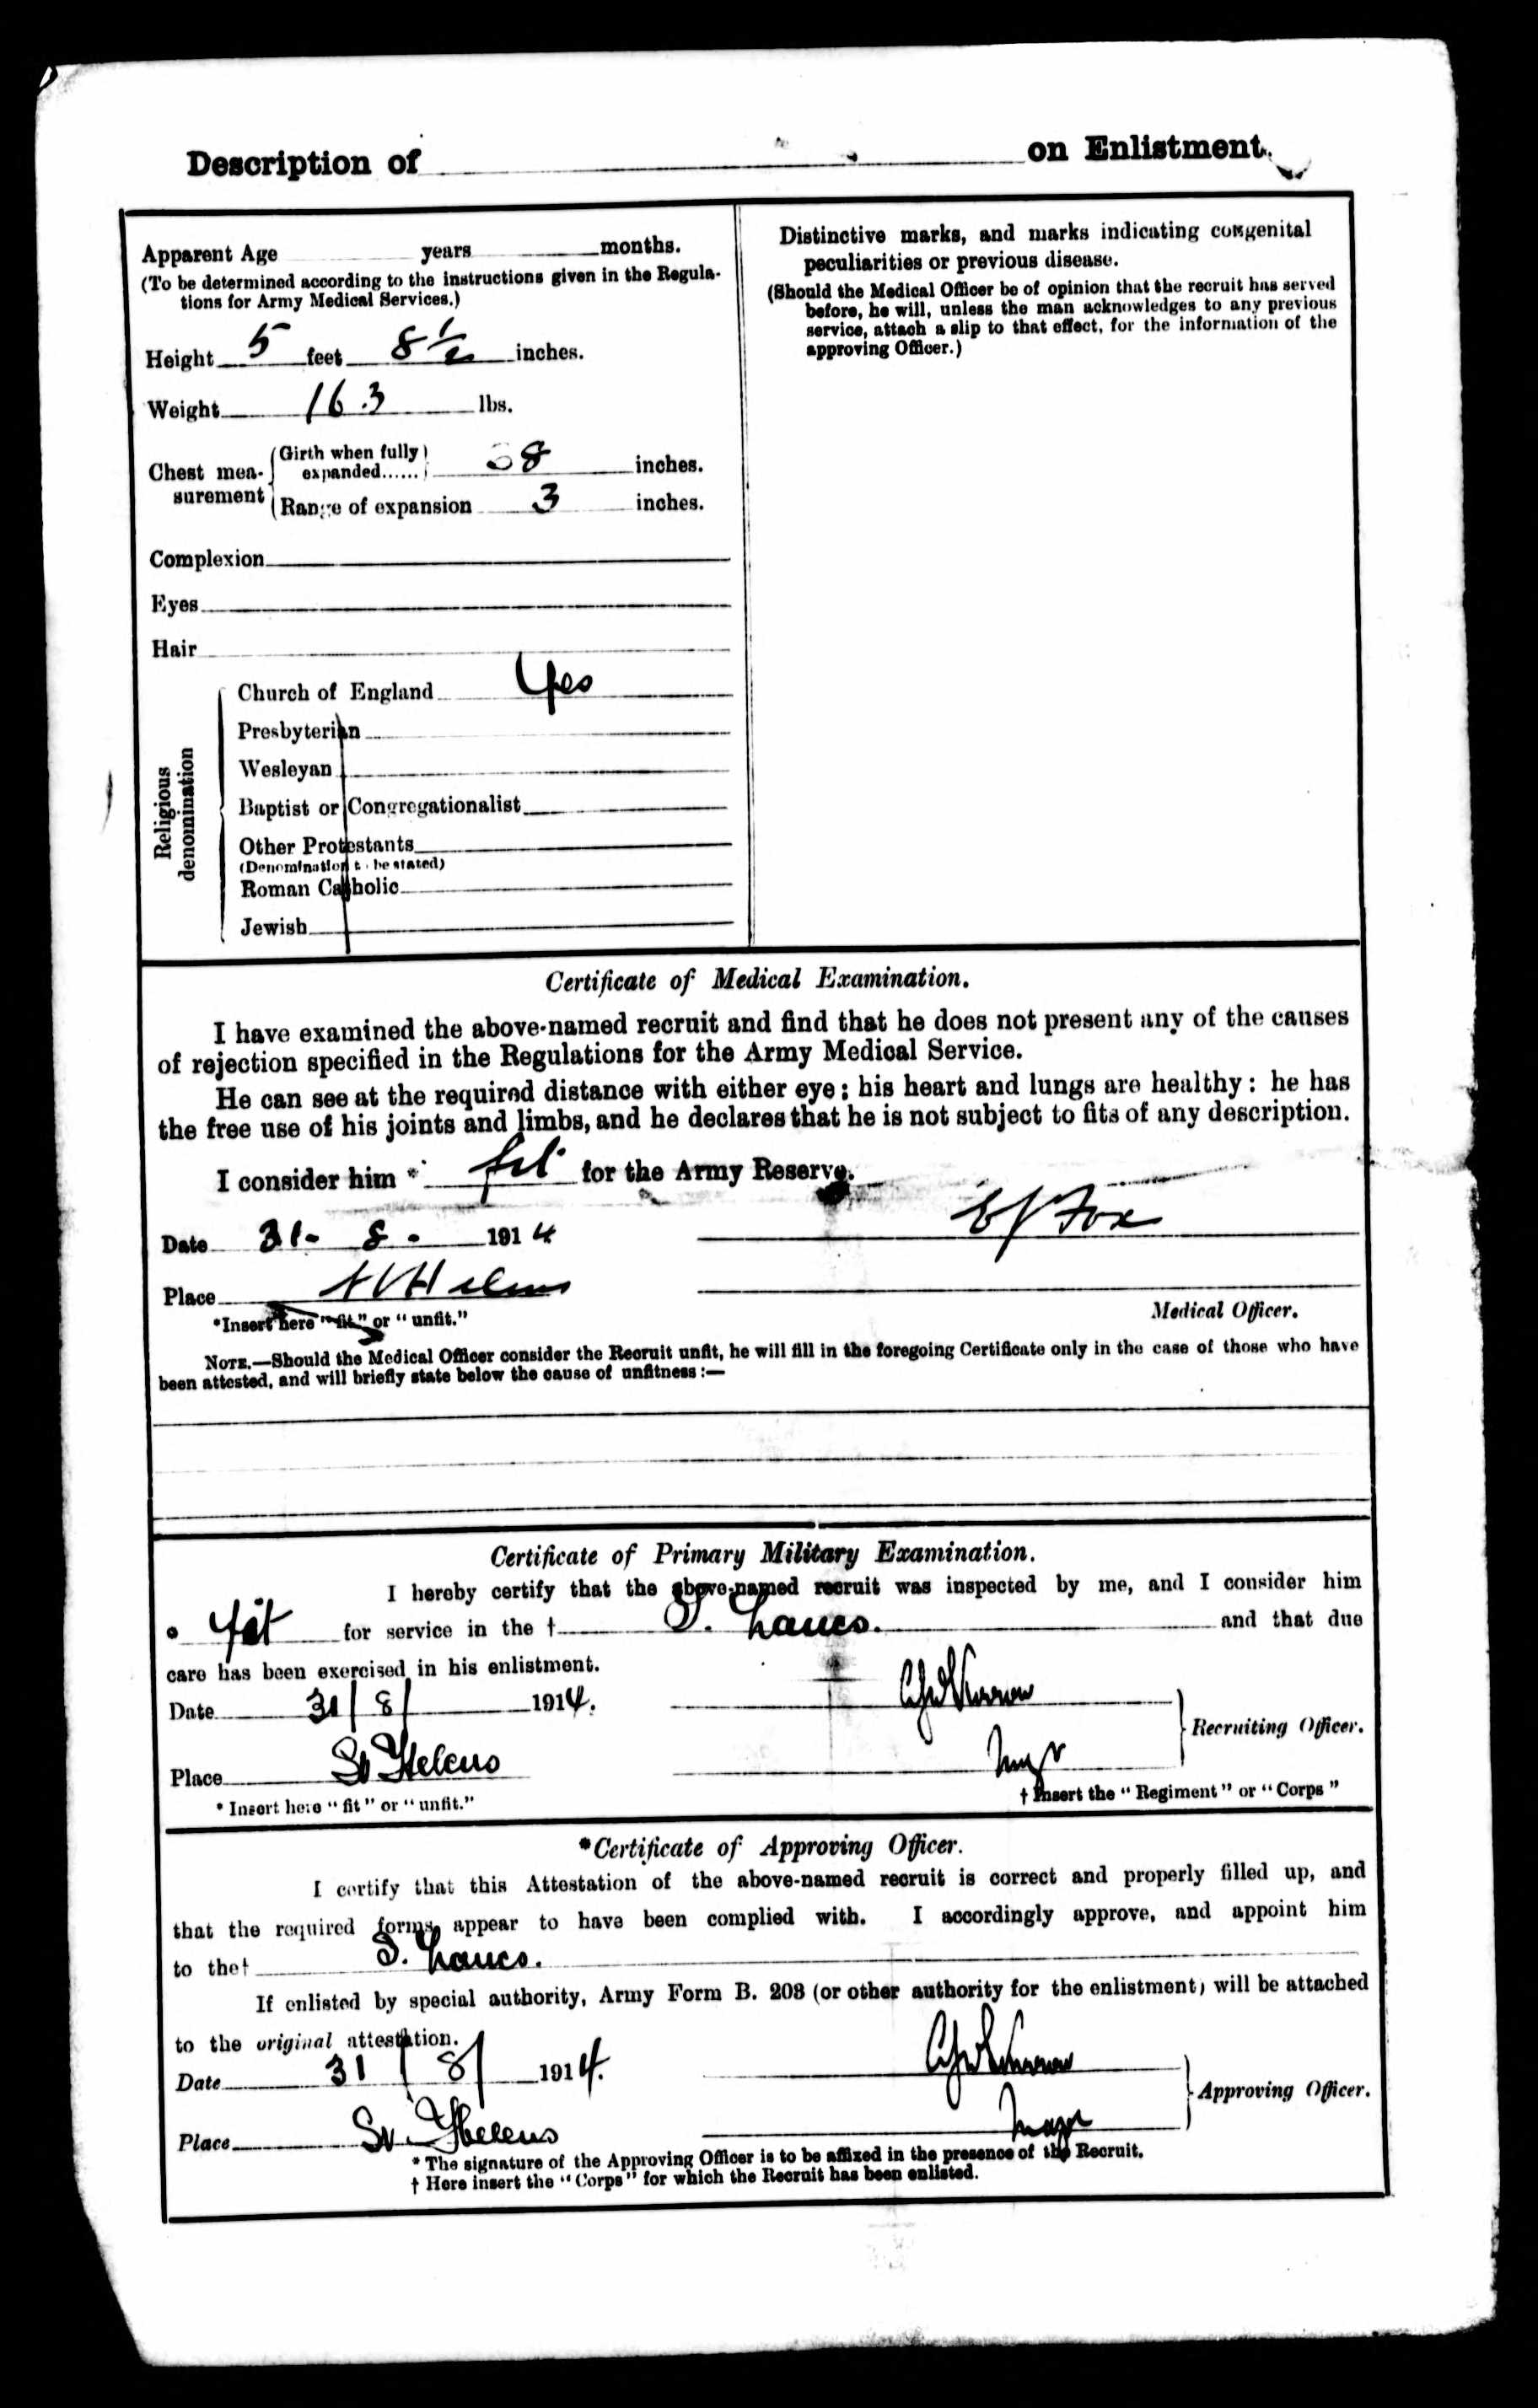 Description of on Enlistment.
Apparent Age years months.
(To be determined according to the instructions given in the Regula-
tions for Army Medical Services.)
Height 5 feet 8 1/2 inches.
Weight 163 lbs.
Chest mea-
surement
Girth when fully
expanded......
38 inches.
Range of expansion 3 inches.
Complexion
Eyes
Hair
Religious
denomination
Church of England Yes
Presbyterian
Wesleyan
Baptist or Congregationalist
Other Protestants
(Denomination to be stated)
Roman Catholic
Jewish
Distinctive marks, and marks indicating congenital
peculiarities or previous disease.
(Should the Medical Officer be of opinion that the recruit has served
before, he will, unless the man acknowledges to any previous
service, attach a slip to that effect, for the information of the
approving Officer.)
Certificate of Medical Examination.
I have examined the above-named recruit and find that he does not present any of the causes
of rejection specified in the Regulations for the Army Medical Service.
He can see at the required distance with either eye; his heart and lungs are healthy: he has
the free use of his joints and limbs, and he declares that he is not subject to fits of any description.
I consider him * fit for the Army Reserve.
Date 31 - 8 - 1914 Fox
Place St Helens
*Insert here "fit" or "unfit."
Medical Officer.
NOTE.—Should the Medical Officer consider the Recruit unfit, he will fill in the foregoing Certificate only in the case of those who have
been attested, and will briefly state below the cause of unfitness :—
Certificate of Primary Military Examination.
I hereby certify that the above-named recruit was inspected by me, and I consider him
* fit for service in the † S. Lancs. and that due
care has been exercised in his enlistment.
Date 31/8/ 1914.
Recruiting Officer.
Place St Helens
* Insert here "fit" or "unfit."
† Insert the "Regiment" or "Corps"
*Certificate of Approving Officer.
I certify that this Attestation of the above-named recruit is correct and properly filled up, and
that the required forms appear to have been complied with. I accordingly approve, and appoint him
to the† S. Lancs.
If enlisted by special authority, Army Form B. 203 (or other authority for the enlistment) will be attached
to the original attestation.
Date 31/8/ 1914.
Approving Officer.
Place St. Helens Major
* The signature of the Approving Officer is to be affixed in the presence of the Recruit.
† Here insert the "Corps" for which the Recruit has been enlisted.